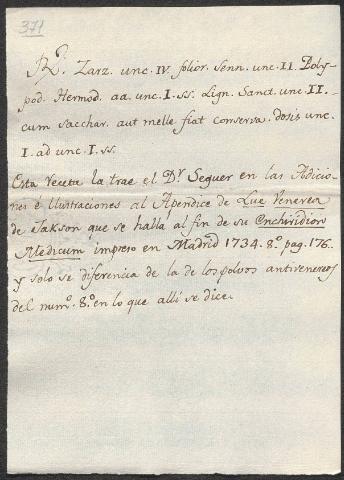 371
R. Zarz. unc. IV. folior. Senn. unc. II. Poly-
pod. Hermod. aa. unc. I. ss. Lign. Sanct. unc. II.
cum sacchar. aut melle fiat conserva. dosis unc.
I. ad unc. I. ss.
Esta receta la trae el Dr. Seguer en las Adicio-
nes e Ilustraciones al Apendice de Lue Venerea
de Jakson que se halla al fin de su Enchiridion
Medicum impreso en Madrid 1734. 8º. pag. 176.
y solo se diferencia de la de los polvos antivenereos
del numº. 8º. en lo que alli se dice.